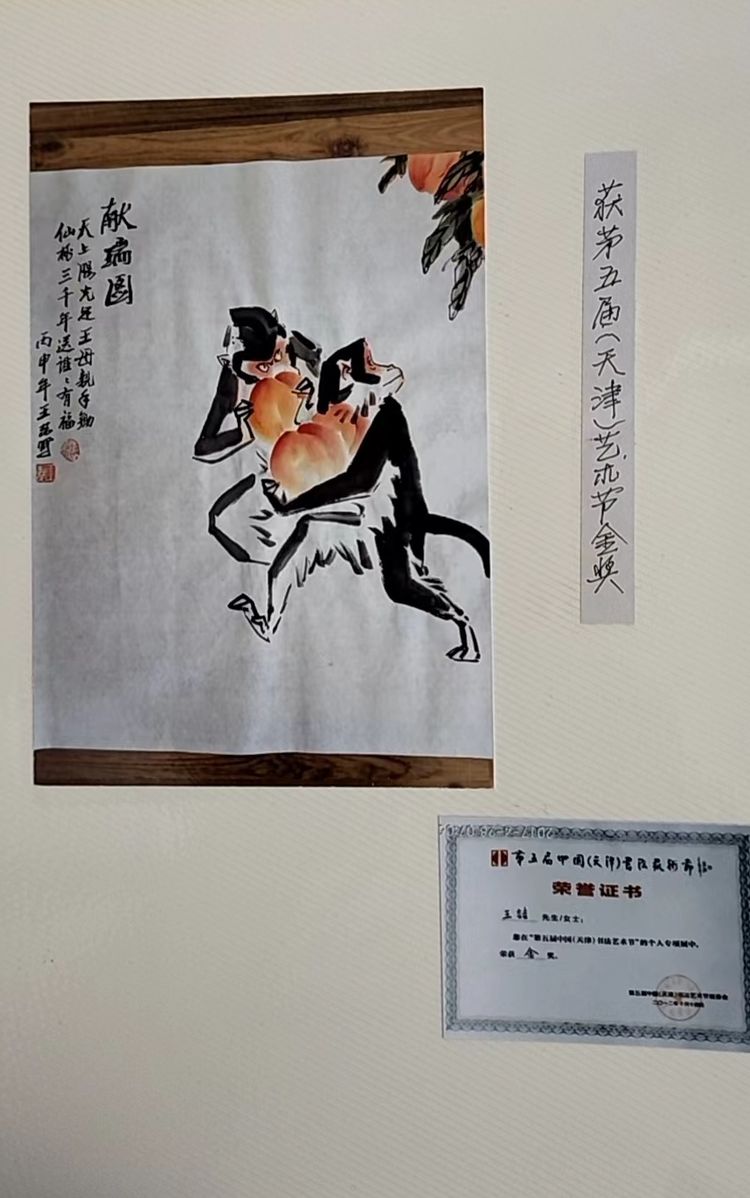 献瑞图
天上胜光冠王母亲手锄
仙桃三千年送谁谁有福
丙申年王喆写
获第五届(天津)艺术节金奖
第五届中国(天津)书法艺术节
荣誉证书
王喆 先生/女士:
您在“第五届中国(天津)书法艺术节”的个人专项展中,
荣获 金 奖。
第五届中国(天津)书法艺术节组委会